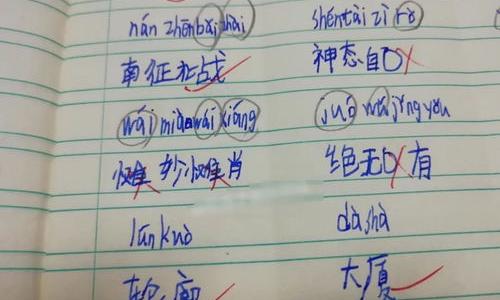 nán zhēnbǎi zhài shéntài zì rò
南征北战 神态自
wái miàowái xiāng juó wújǐngyǒu
妙 肖 绝无 有
lún kuò dà shà
轮廓 大厦